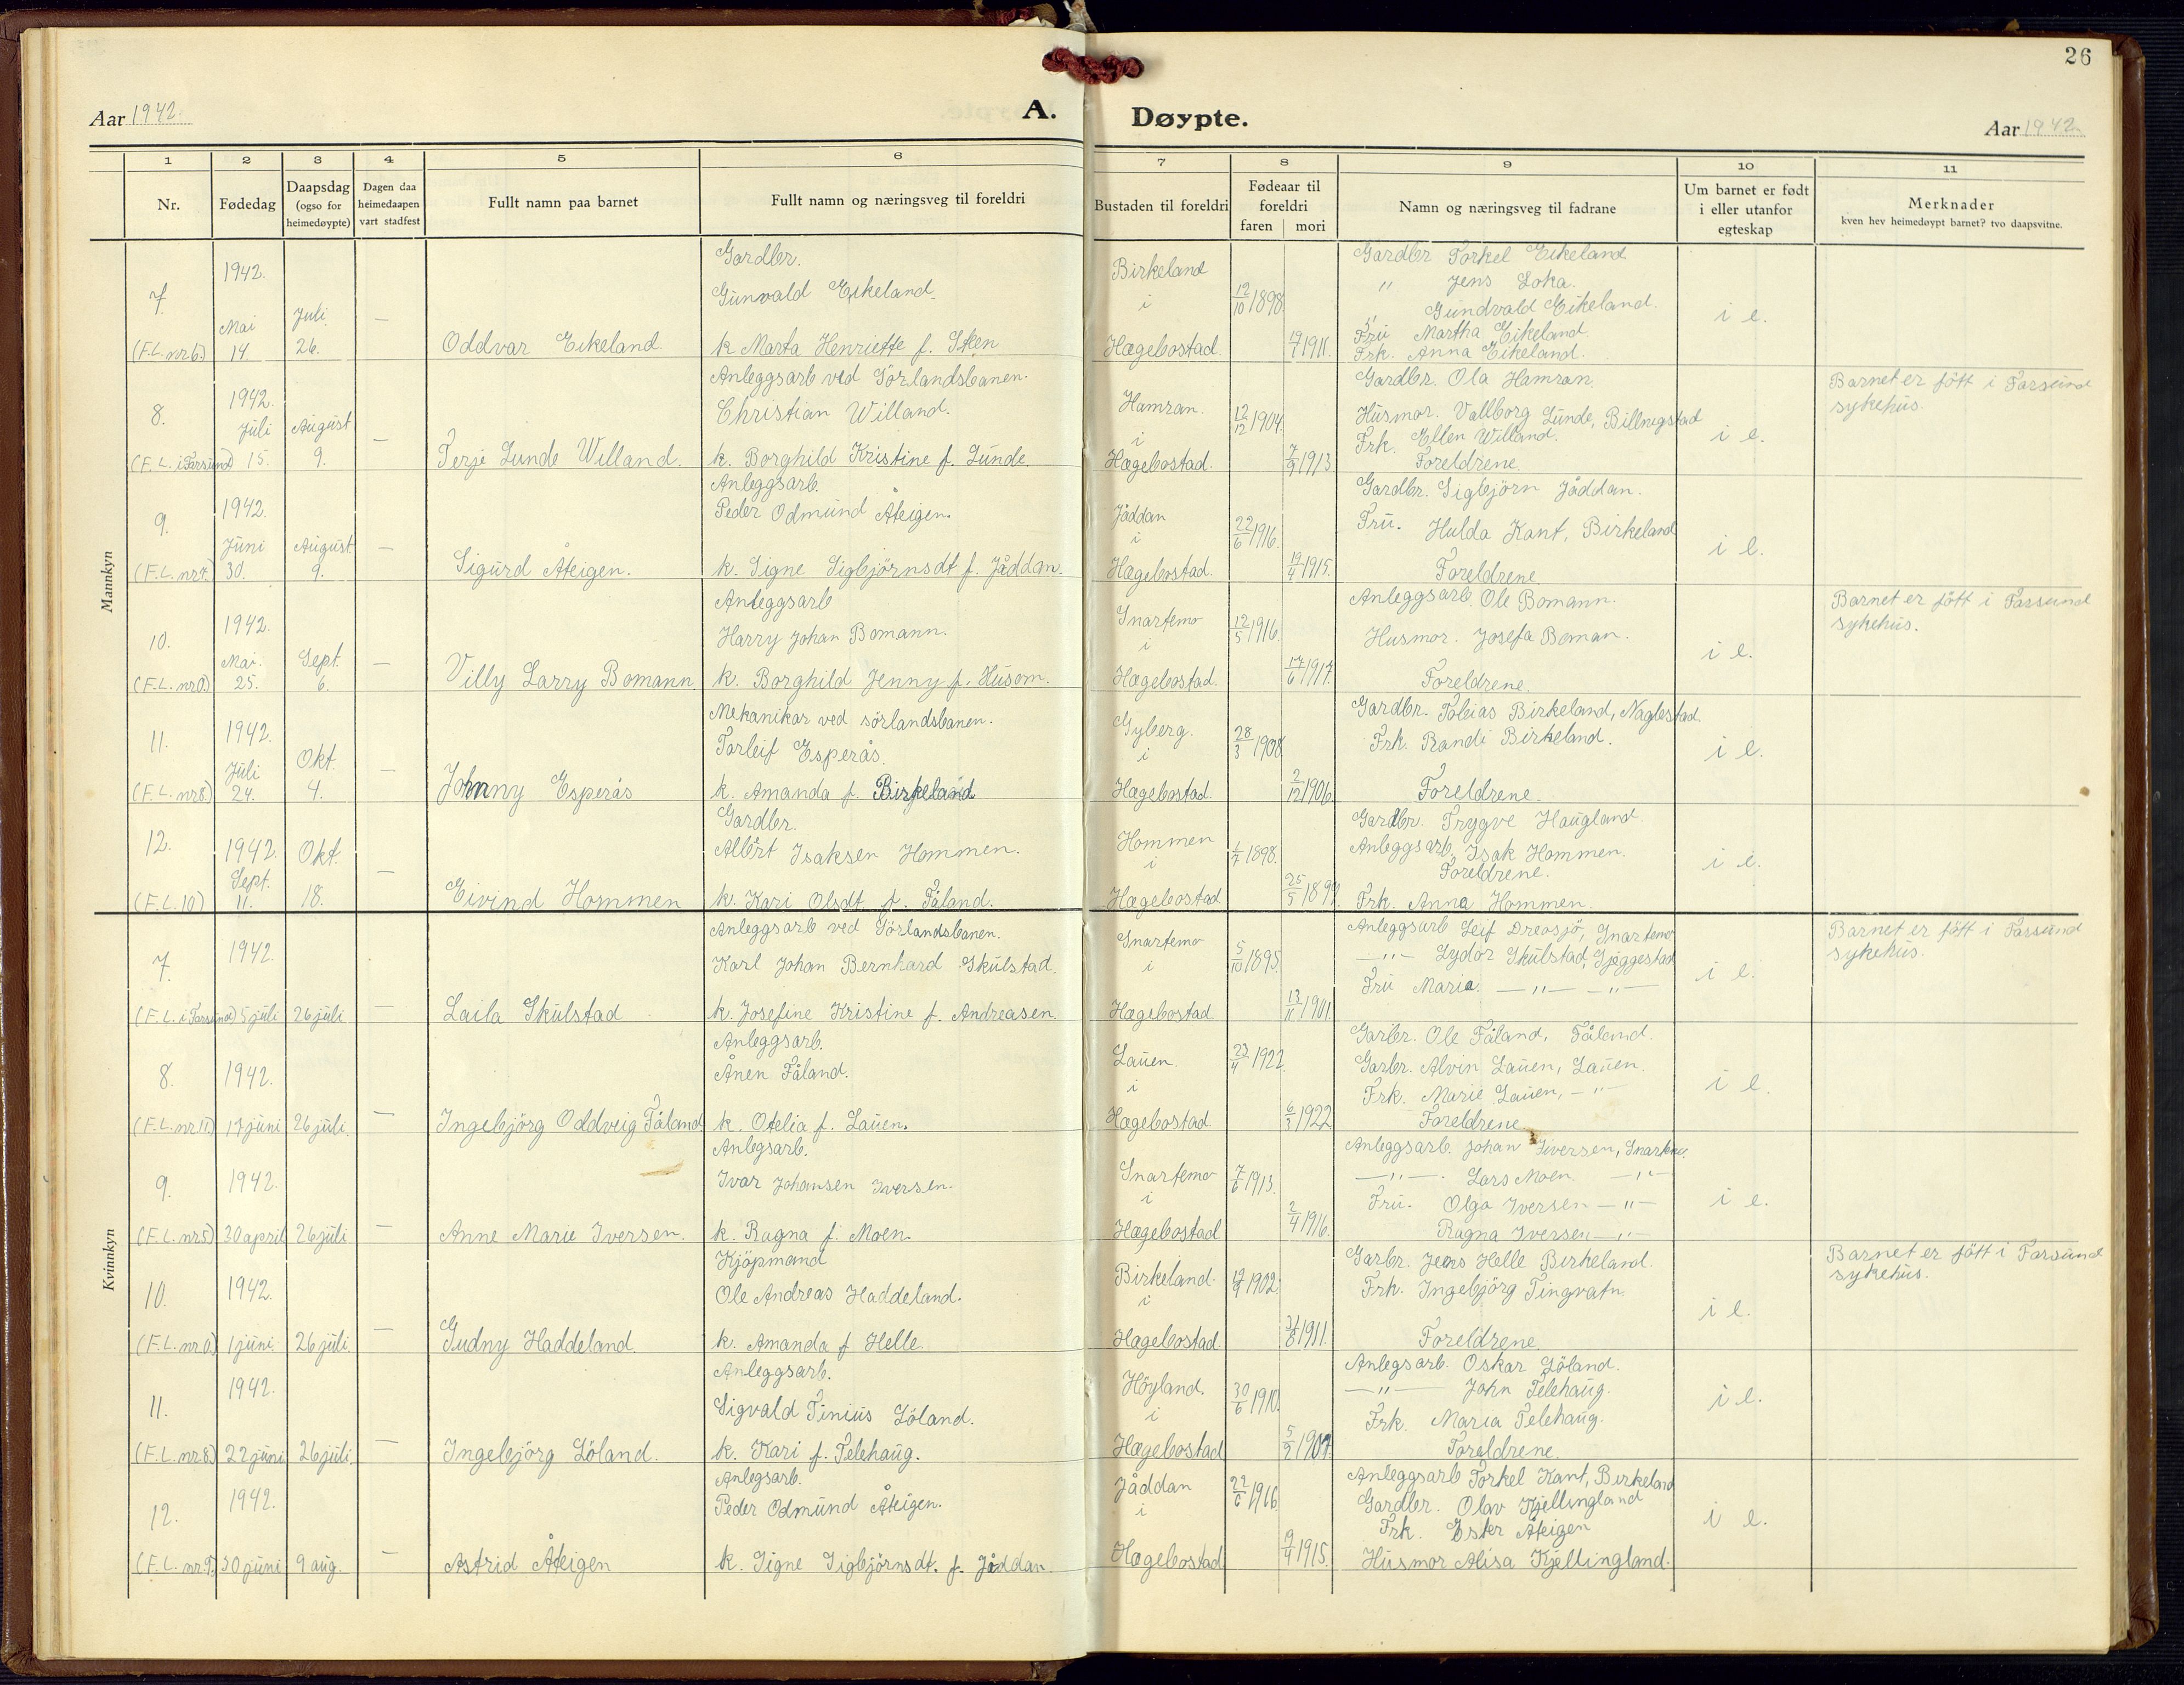 26
Aar 1942.
A. Døypte.
Aar 1942.
1 2 3 4 5 6 7 8 9 10 11
Nr.
Fødedag
Daapsdag (ogso for heimedøypte)
Dagen daa heimedaapen vart stadfest
Fullt namn paa barnet
Fullt namn og næringsveg til foreldri
Bustaden til foreldri
Fødeaar til foreldri
faren mori
Namn og næringsveg til fadrane
Um barnet er født i eller utanfor egteskap
Merknader
kven hev heimedøypt barnet? tvo daapsvitne.
Mannkyn
7.
(F.L. nr 6.)
1942.
Mai
14
Juli
26.
—
Oddvar Eikeland
Gardbr.
Gunvald Eikeland.
k Marta Henriette f. Steen
Birkeland
i
Hægebostad.
12/10 1898
1911.
Gardbr Torkel Eikeland
" Jens Loka.
" Gundvald Eikeland.
Fru Martha Eikeland
Frk. Anna Eikeland.
i e.
8.
(F.L. i Farsund)
1942.
Juli
15.
August
9.
—
Terje Lunde Willand.
Anleggsarb ved Sörlandsbanen.
Christian Willand.
k. Borghild Kristine f. Lunde.
Hamran.
i
Hægebostad.
12/12 1904.
7/9 1913
Gardbr. Ola Hamran.
Husmor. Vallborg Lunde, Billingstad
Frk. Ellen Willand.
Foreldrene.
i e.
Barnet er fött i Farsund
sykehus.
9.
(F.L. nr 7.)
1942.
Juni
30.
August.
9.
—
Sigurd Åteigen.
Anleggsarb.
Peder Odmund Åteigen.
k. Signe Sigbjörnsdt f. Jåddan.
Jåddan
i
Hægebostad.
22/6 1916.
1915.
Gardbr. Sigbjörn Jåddan.
Fru. Hulda Kant, Birkeland
Foreldrene.
i e.
10.
(F.L. nr 0.)
1942.
Mai.
25.
Sept.
6.
—
Villy Larry Bomann.
Anleggsarb
Harry Johan Bomann.
k. Borghild Jenny f. Husom.
Snartemo
i
Hægebostad.
12/5 1916.
17/6 1917.
Anleggsarb. Ole Bomann.
Husmor. Josefa Boman.
Foreldrene.
i e.
Barnet er fött i Farsund
sykehus.
11.
(F.L. nr 8.)
1942.
Juli
24.
Okt.
4.
—
Johnny Esperås
Mekanikar ved sörlandsbanen.
Torleif Esperås.
k. Amanda f. Birkeland
Gyberg.
i
Hægebostad.
28/3 1908
2/12 1906
Gardbr. Tobias Birkeland, Naglestad.
Frk. Randi Birkeland.
Foreldrene.
i e.
12.
(F.L. 10)
1942.
Sept.
11.
Okt.
18.
—
Eivind Hommen
Gardbr.
Albert Isaksen Hommen.
k. Kari Olsdt f. Fåland.
Hommen
i
Hægebostad
1/7 1898.
25/5 1899.
Gardbr. Trygve Haugland.
Anleggsarb. Isak Hommen.
Foreldrene.
Frk. Anna Hommen.
i e.
Kvinnkyn
7.
(F.L. i Farsund)
1942.
5 juli
26 juli
—
Laila Skulstad
Anleggsarb ved Sörlandsbanen.
Karl Johan Bernhard Skulstad.
k. Josefine Kristine f. Andreasen.
Snartemo
i
Hægebostad
5/10 1895.
13/11 1901.
Anleggsarb Leif Dreosjö, Snartemo
—"— Lydor Skulstad, Gjeggestad
Fru Maria —"— —"—
i e.
Barnet er fött i Farsund
sykehus.
8.
(F.L. nr 11.)
1942.
17 juni
26 juli.
—
Ingebjörg Oddveig Fåland
Anleggsarb.
Ånen Fåland.
k. Otelia f. Lauen.
Lauen.
i
Hægebostad.
23/4 1922.
6/3 1922
Garbr. Ole Fåland, Fåland.
Garbr. Alvin Lauen, Lauen.
Frk. Marie Lauen, —"—
Foreldrene
i e.
9.
(F.L. nr 5)
1942.
30 april
26 juli
—
Anne Marie Iversen.
Anlegsarb.
Ivar Johansen Iversen.
k. Ragna f. Moen.
Snartemo
i
Hægebostad
7/6 1913.
2/4 1916.
Anleggsarb. Johan Iversen, Snartemo.
—"— Lars Moen. —"—
Fru. Olga Iversen —"—
Ragna Iversen —"—
i e.
10.
(F.L. nr 0.)
1942.
1 juni.
26 juli.
—
Gudny Haddeland.
Kjöpmand
Ole Andreas Haddeland.
k. Amanda f Helle.
Birkeland.
i
Hægebostad.
1902.
1911.
Garbr. Jens Helle Birkeland.
Frk. Ingebjörg Tingvatn.
Foreldrene.
i e.
Barnet er fött i Farsund
sykehus.
11.
(F.L. nr 8.)
1942.
22 juni
26 juli.
—
Ingebjörg Löland.
Anleggsarb.
Sigvald Tinius Löland.
k. Kari f. Telehaug.
Höyland.
i
Hægebostad
30/6 1910.
1907.
Anlegsarb. Oskar Löland.
—"— John Telehaug.
Frk. Maria Telehaug.
Foreldrene.
i e.
12.
(F.L. nr. 9.)
1942.
30 juni
9 aug.
—
Astrid Åteigen
Anlegsarb.
Peder Odmund Åteigen.
k. Signe Sigbjörnsdt. f. Jåddan.
Jåddan
i
Hægebostad
22/6 1916
1915.
Anleggsarb Torkel Kant, Birkeland
Gardbr. Olav Kjellingland
Frk. Ester Åteigen
Husmor Alisa Kjellingland.
i e.